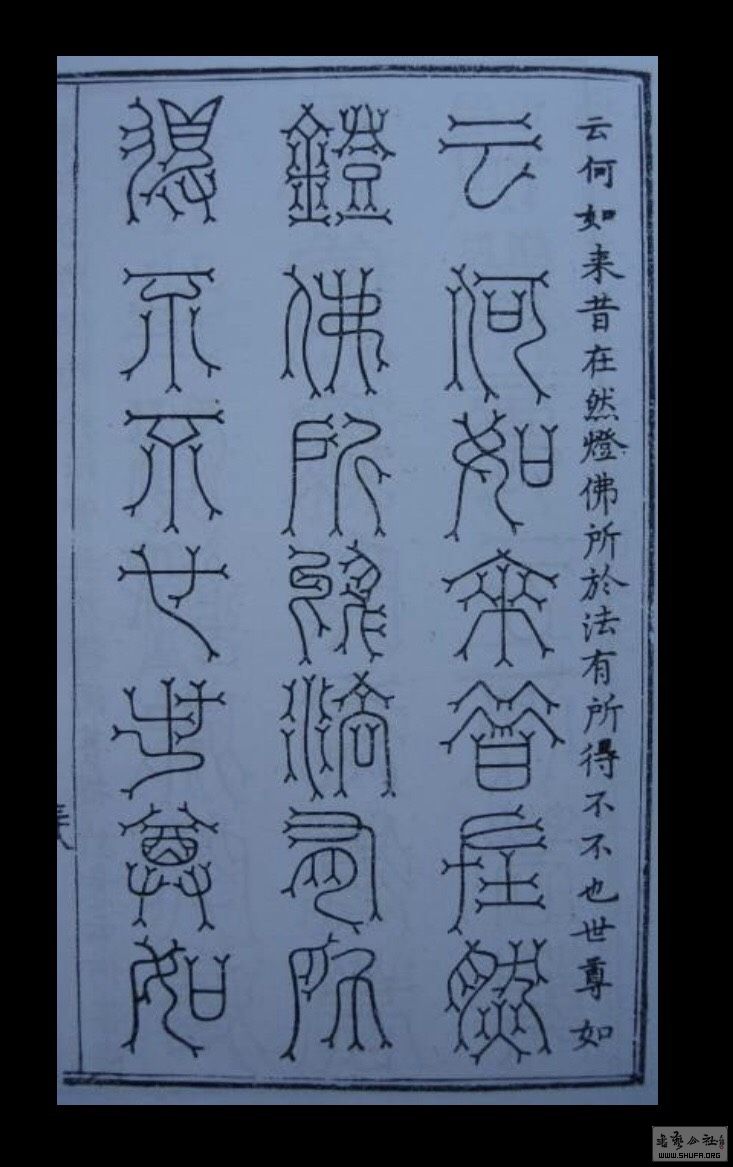 云何如来昔在然燈佛所於法有所得不不也世尊如
云何如来昔在然
鐙佛所於法有所
得不不也世尊如
WWW.SHUFA.ORG